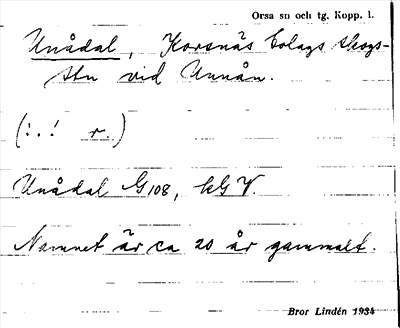 Orsa sn och tg. Kopp. l.
Unådal, Korsnäs bolags skogs-
stn vid Unnån.
(:.! r.)
Unådal G108, kG V.
Namnet är ca 20 år gammalt.
Bror Lindén 1934